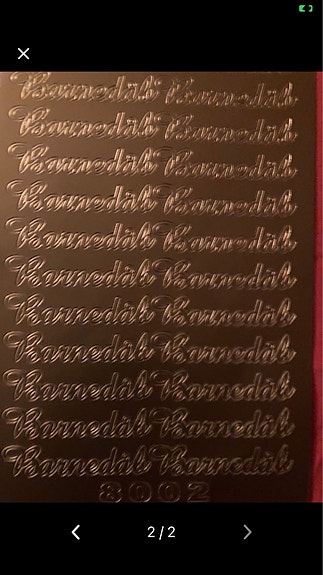 Barnedåb Barnedåb
Barnedåb Barnedåb
Barnedåb Barnedåb
Barnedåb Barnedåb
Barnedåb Barnedåb
Barnedåb Barnedåb
Barnedåb Barnedåb
Barnedåb Barnedåb
Barnedåb Barnedåb
Barnedåb Barnedåb
Barnedåb Barnedåb
8002
2/2